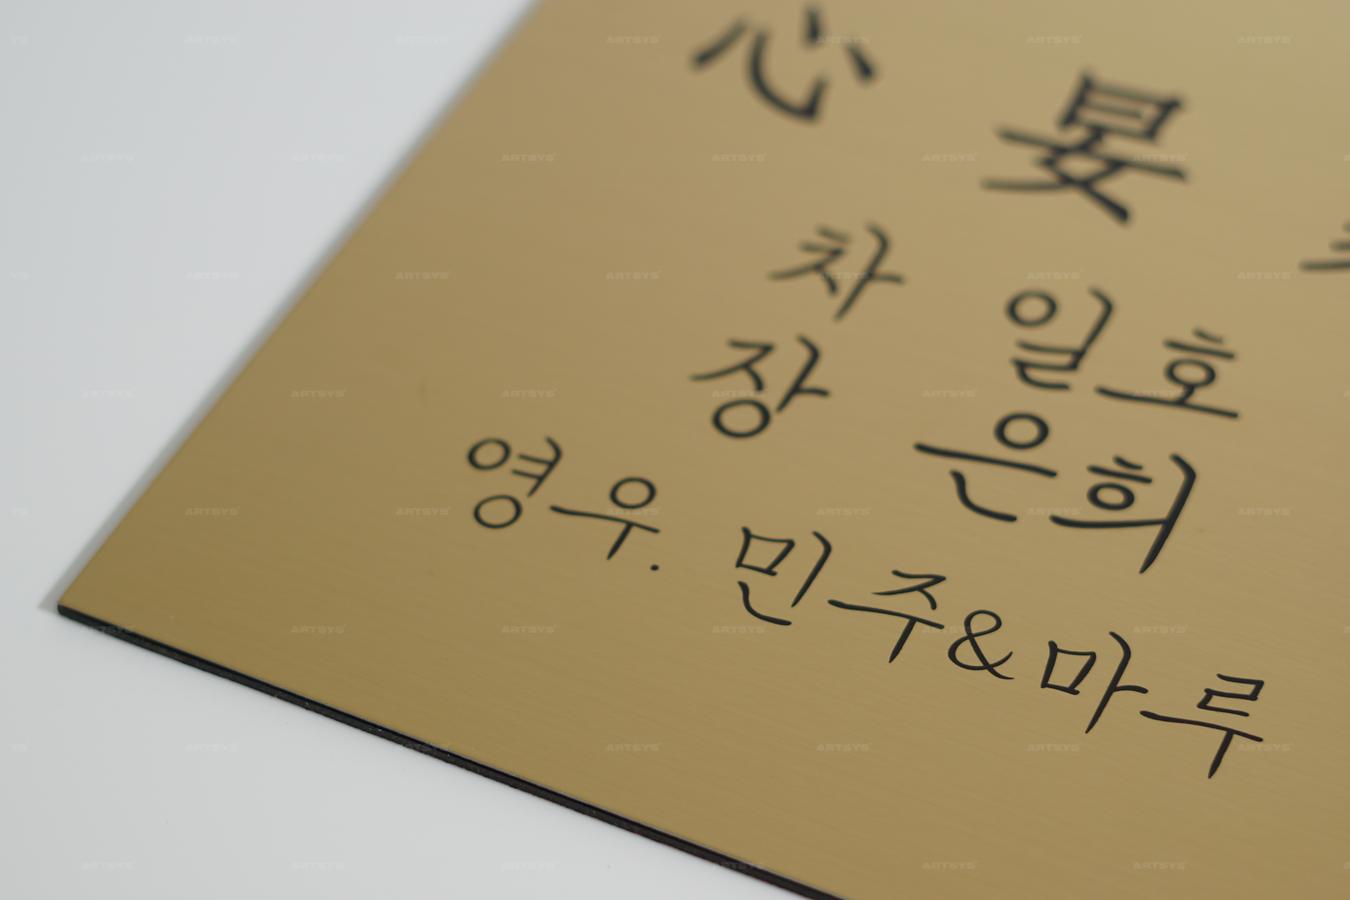 心 晏
차 일호
장 은희
영우. 민주&마루
ARTSYS